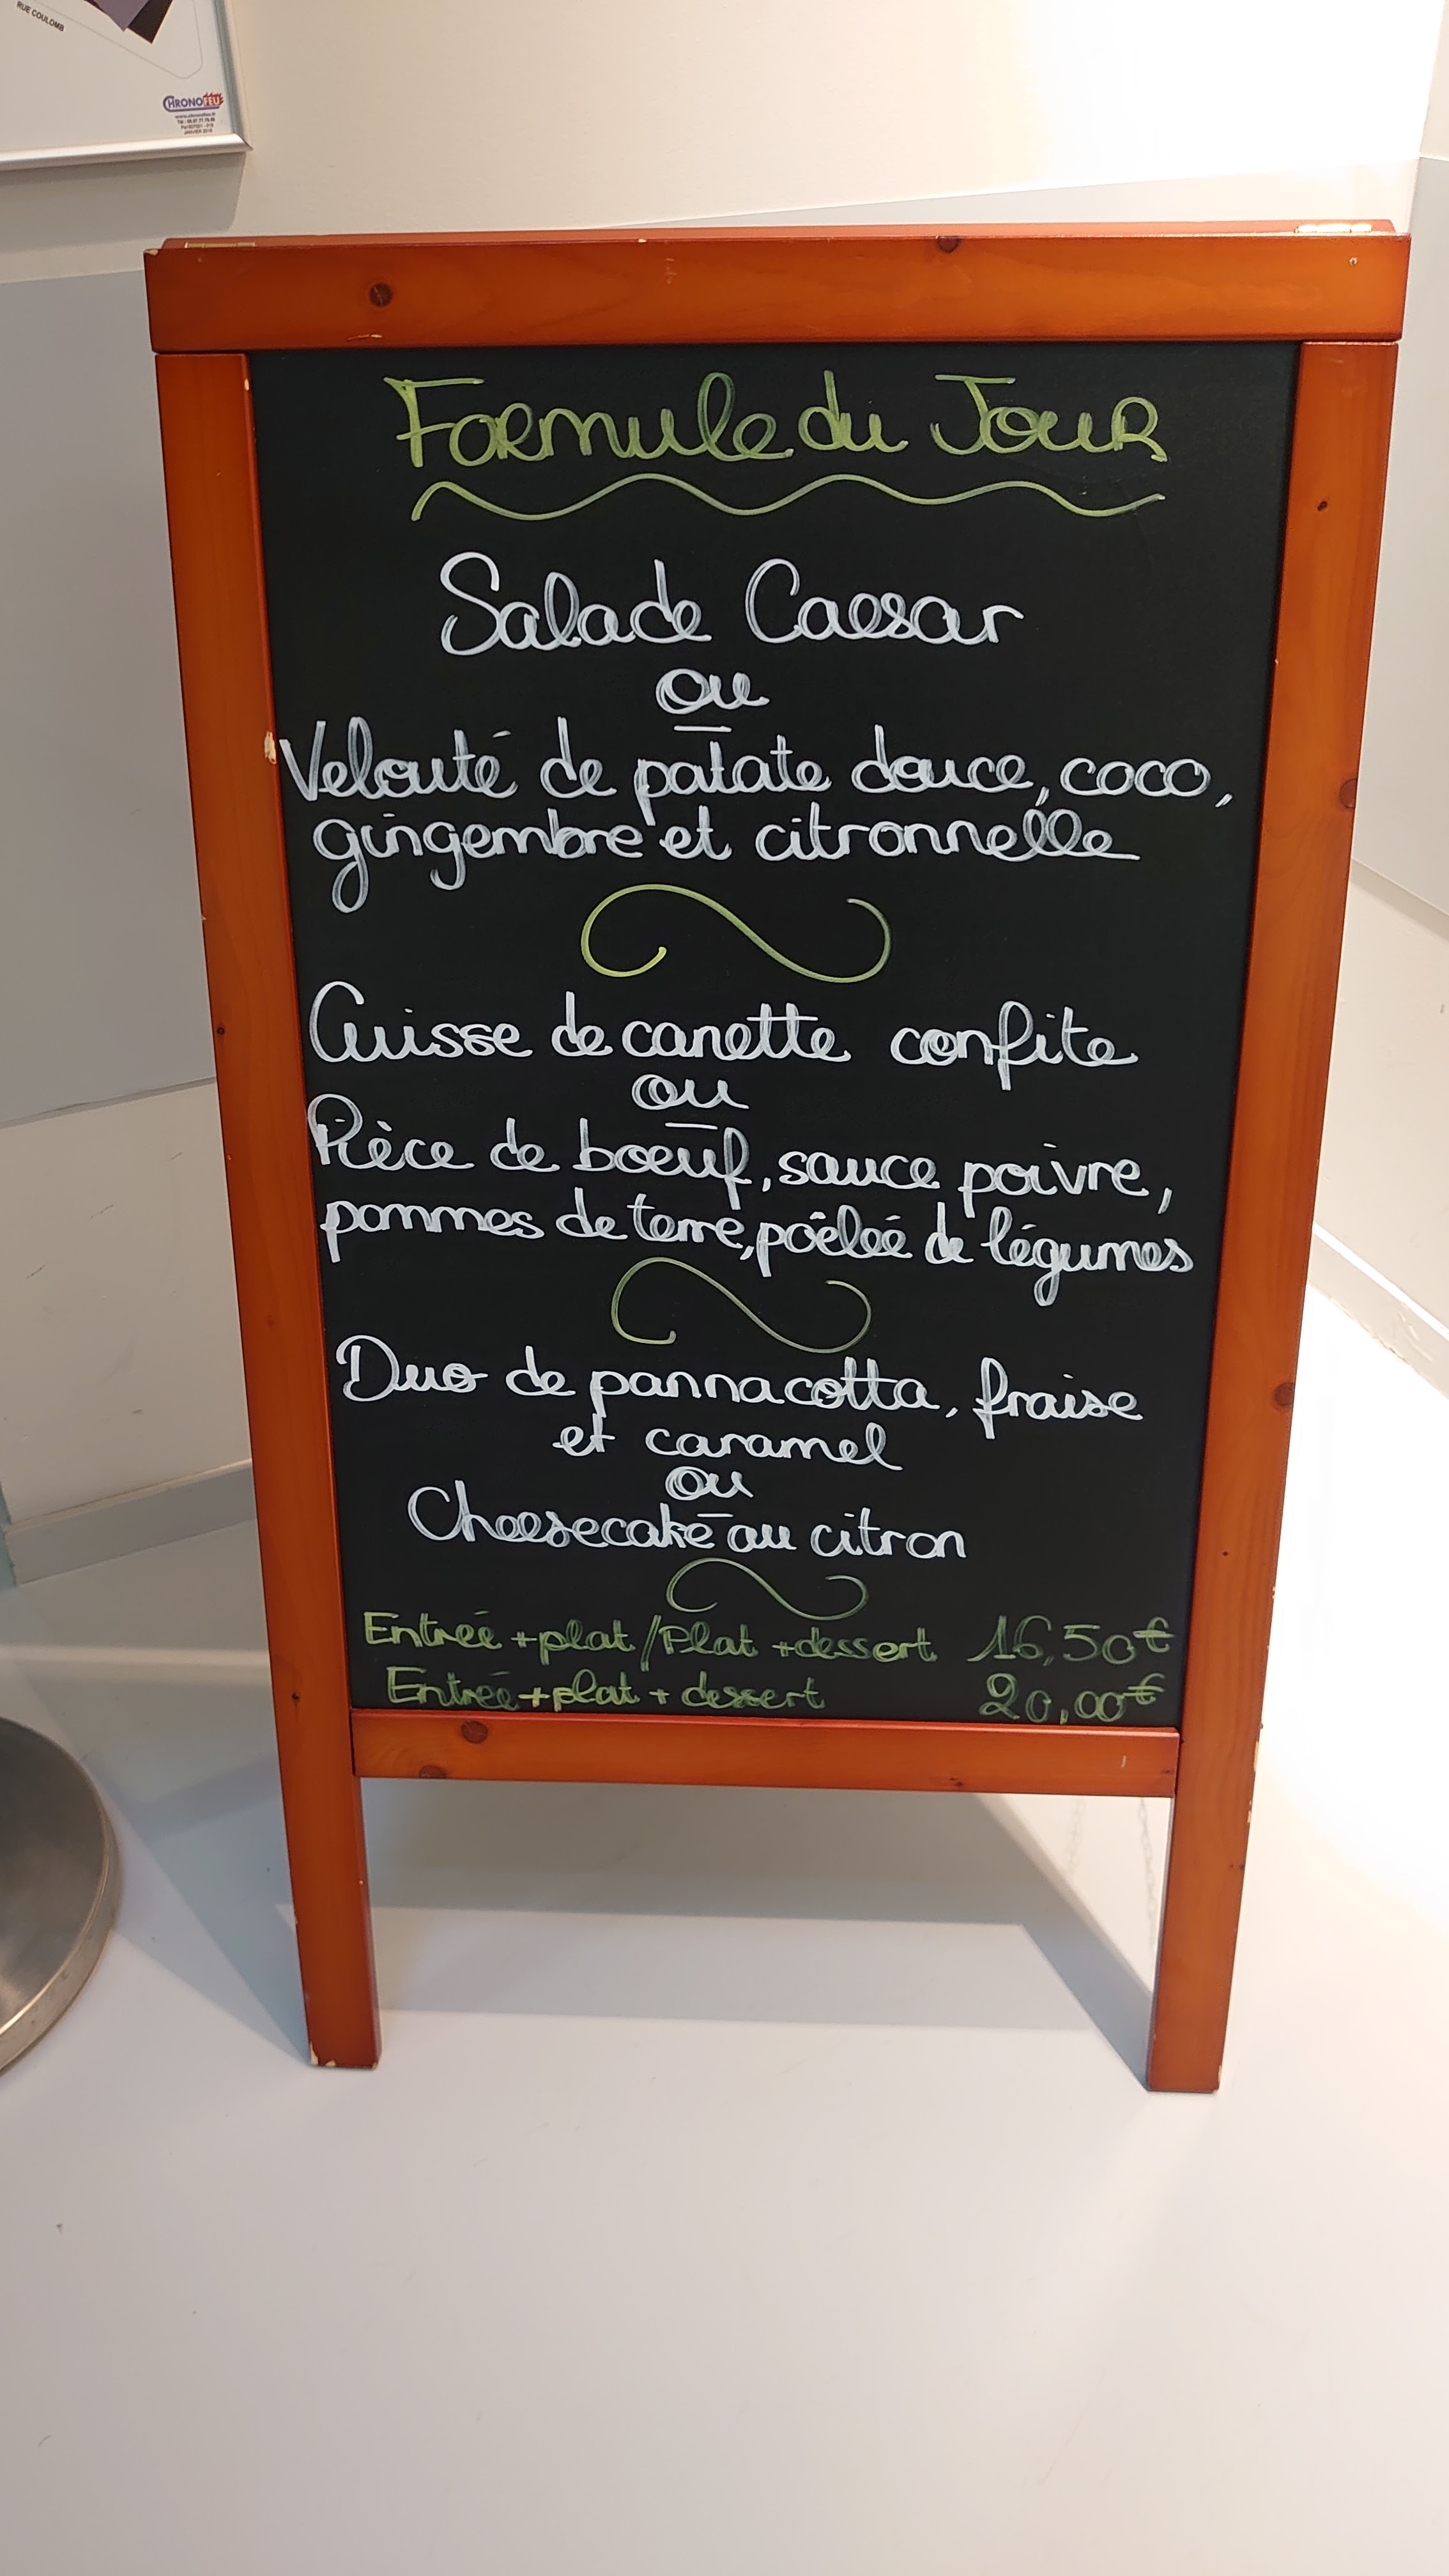 RUE COULOMB
CHRONOFEU
Formule du Jour
Salade Caesar
ou
Velouté de patate douce, coco,
gingembre et citronnelle
Cuisse de canette confite
ou
Pièce de boeuf, sauce poivre,
pommes de terre, poêlée de légumes
Duo de pannacotta, fraise
et caramel
ou
Cheesecake au citron
Entrée + plat / Plat + dessert 16,50€
Entrée + plat + dessert 20,00€